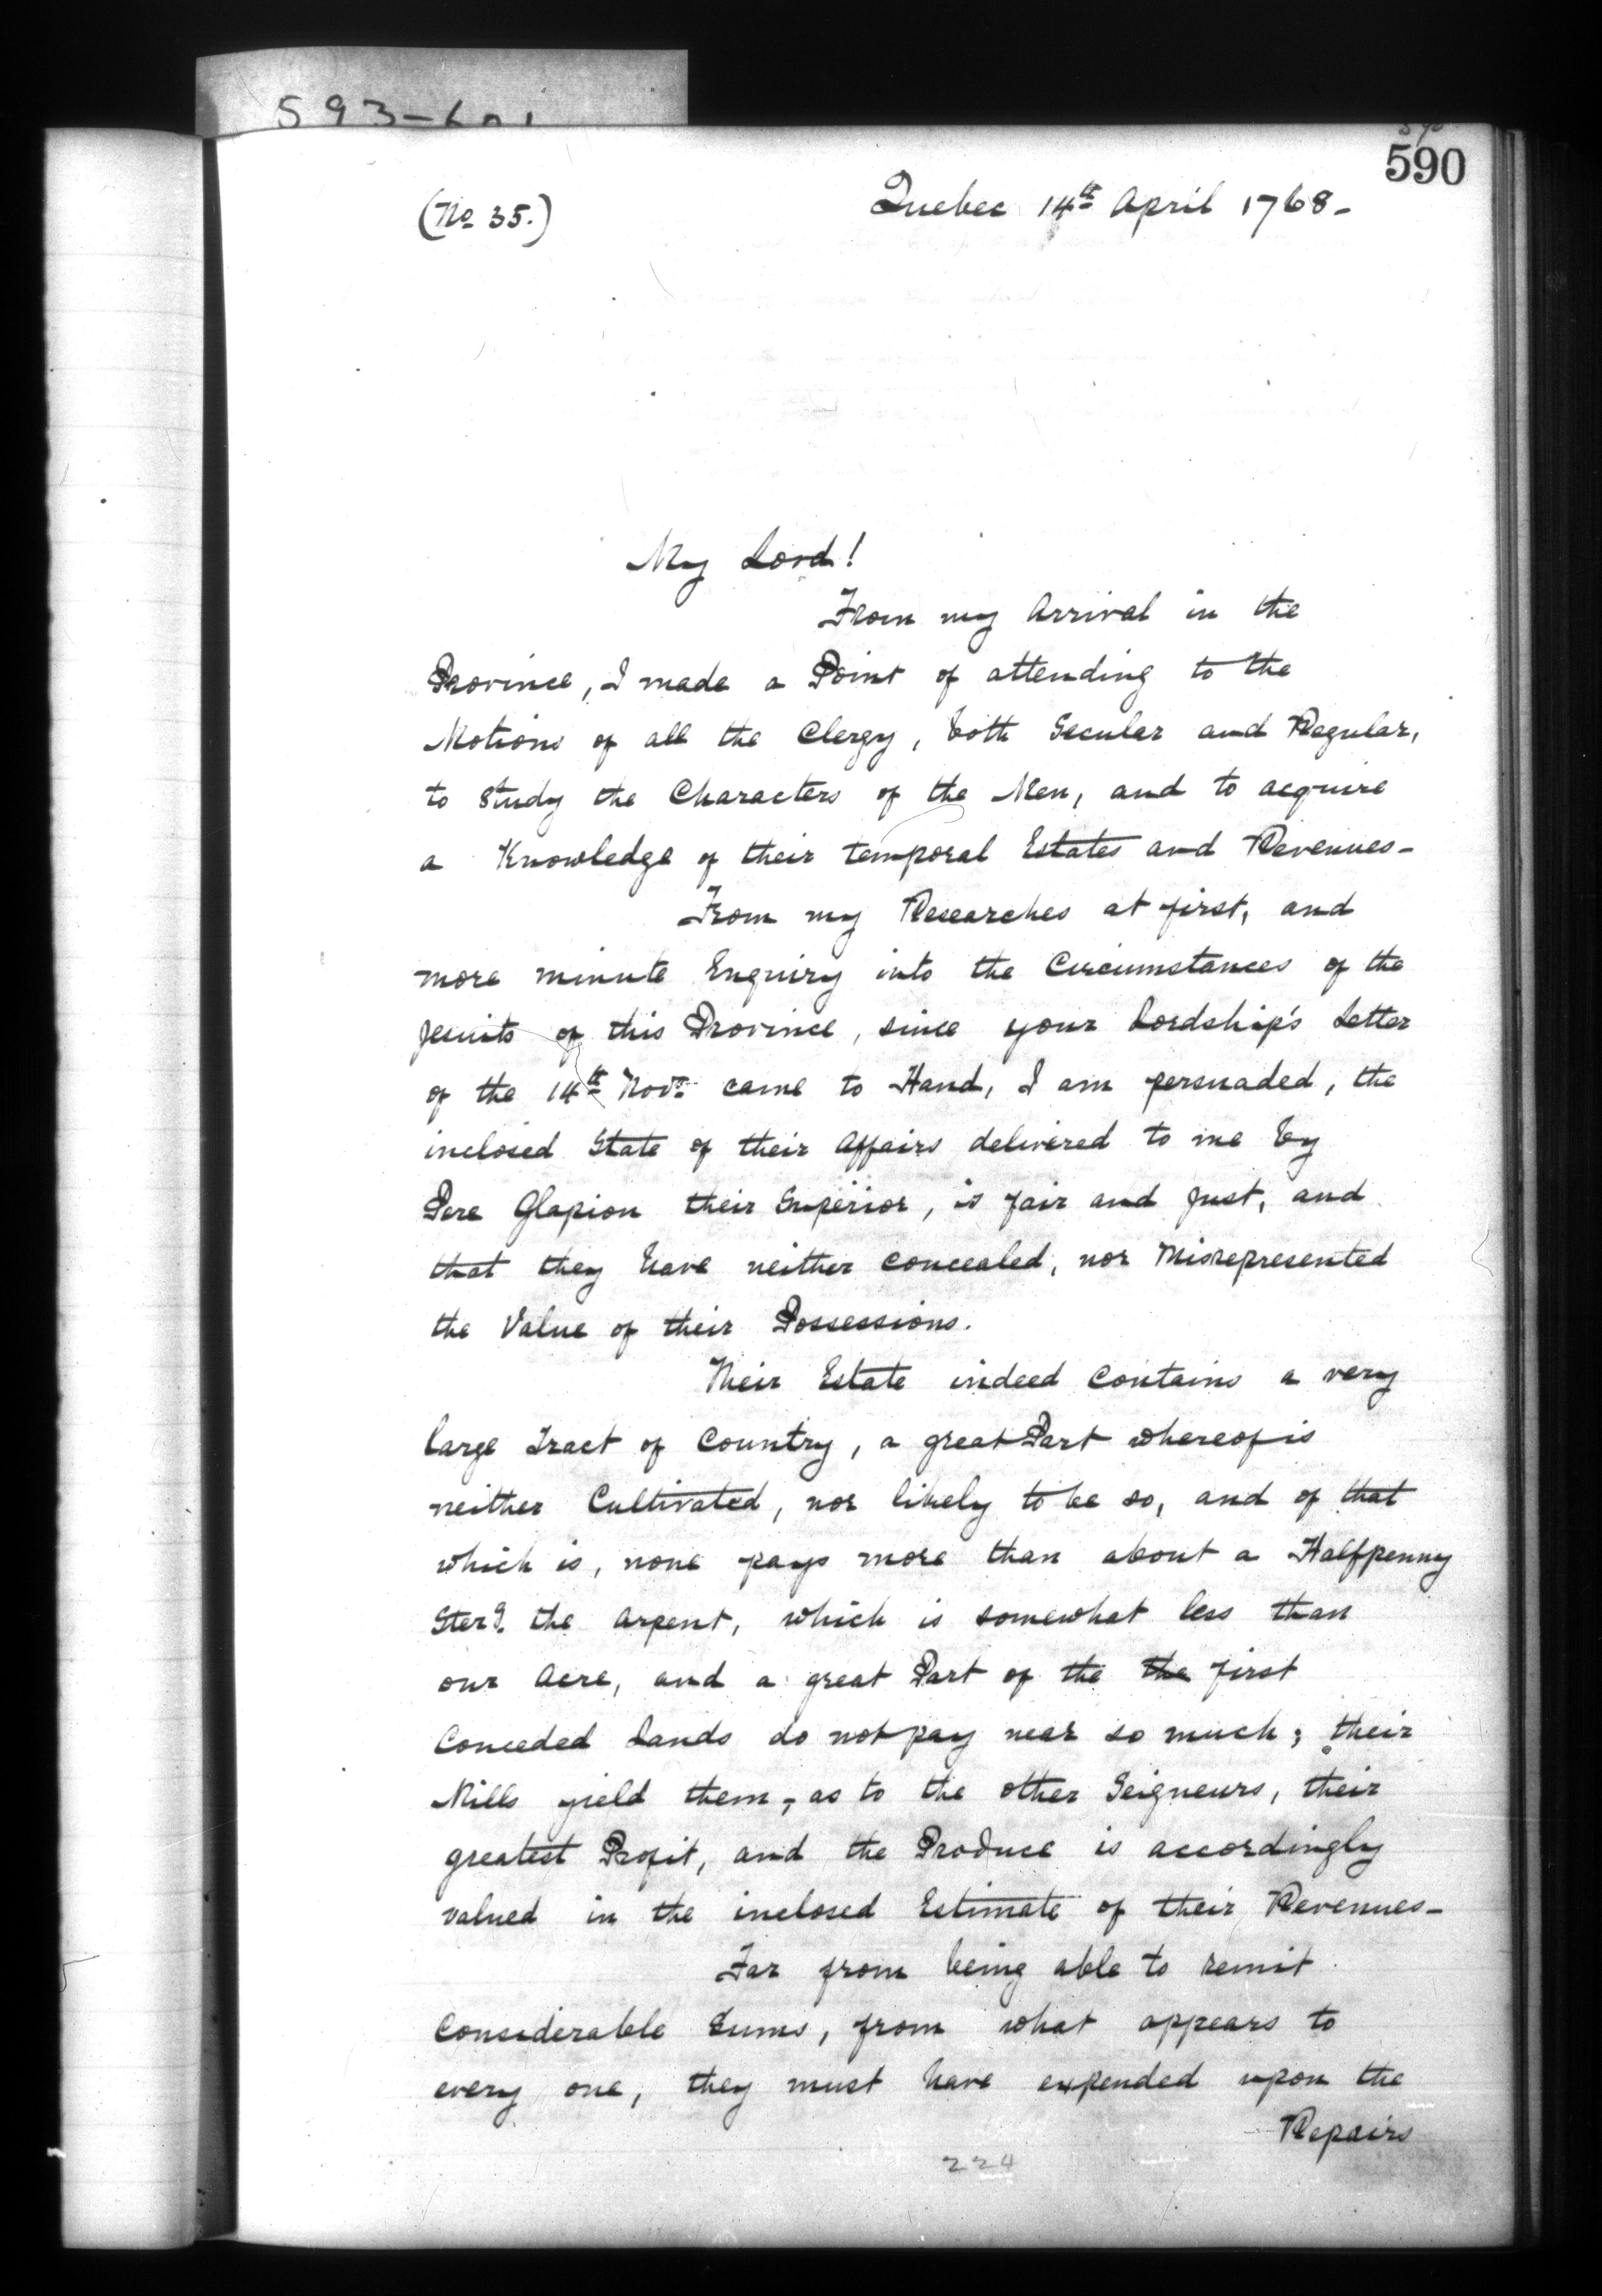 593-601
590
590
(No 35.)
Quebec 14th April 1768-
My Lord!
From my Arrival in the
Province, I made a Point of attending to the
Motions of all the Clergy, both Secular and Regular,
to Study the Characters of the Men, and to acquire
a Knowledge of their temporal Estates and Revenues-
From my Researches at first, and
more minute Enquiry into the Circumstances of the
Jesuits of this Province, since your Lordship's Letter
of the 14th Novr. came to Hand, I am persuaded, the
inclosed State of their Affairs delivered to me by
Pere Glapion their Superior, is fair and just, and
that they have neither concealed, nor Misrepresented
the Value of their Possessions.
Their Estate indeed Contains a very
large Tract of Country, a great Part whereof is
neither Cultivated, nor likely to be so, and of that
which is, none pays more than about a Halfpenny
Sterg. the Arpent, which is somewhat less than
our Acre, and a great Part of the the first
Conceded Lands do not pay near so much; their
Mills yield them, as to the other Seigneurs, their
greatest Profit, and the Produce is accordingly
valued in the inclosed Estimate of their Revenues-
Far from being able to remit
Considerable Sums, from what appears to
every one, they must have expended upon the
Repairs
224